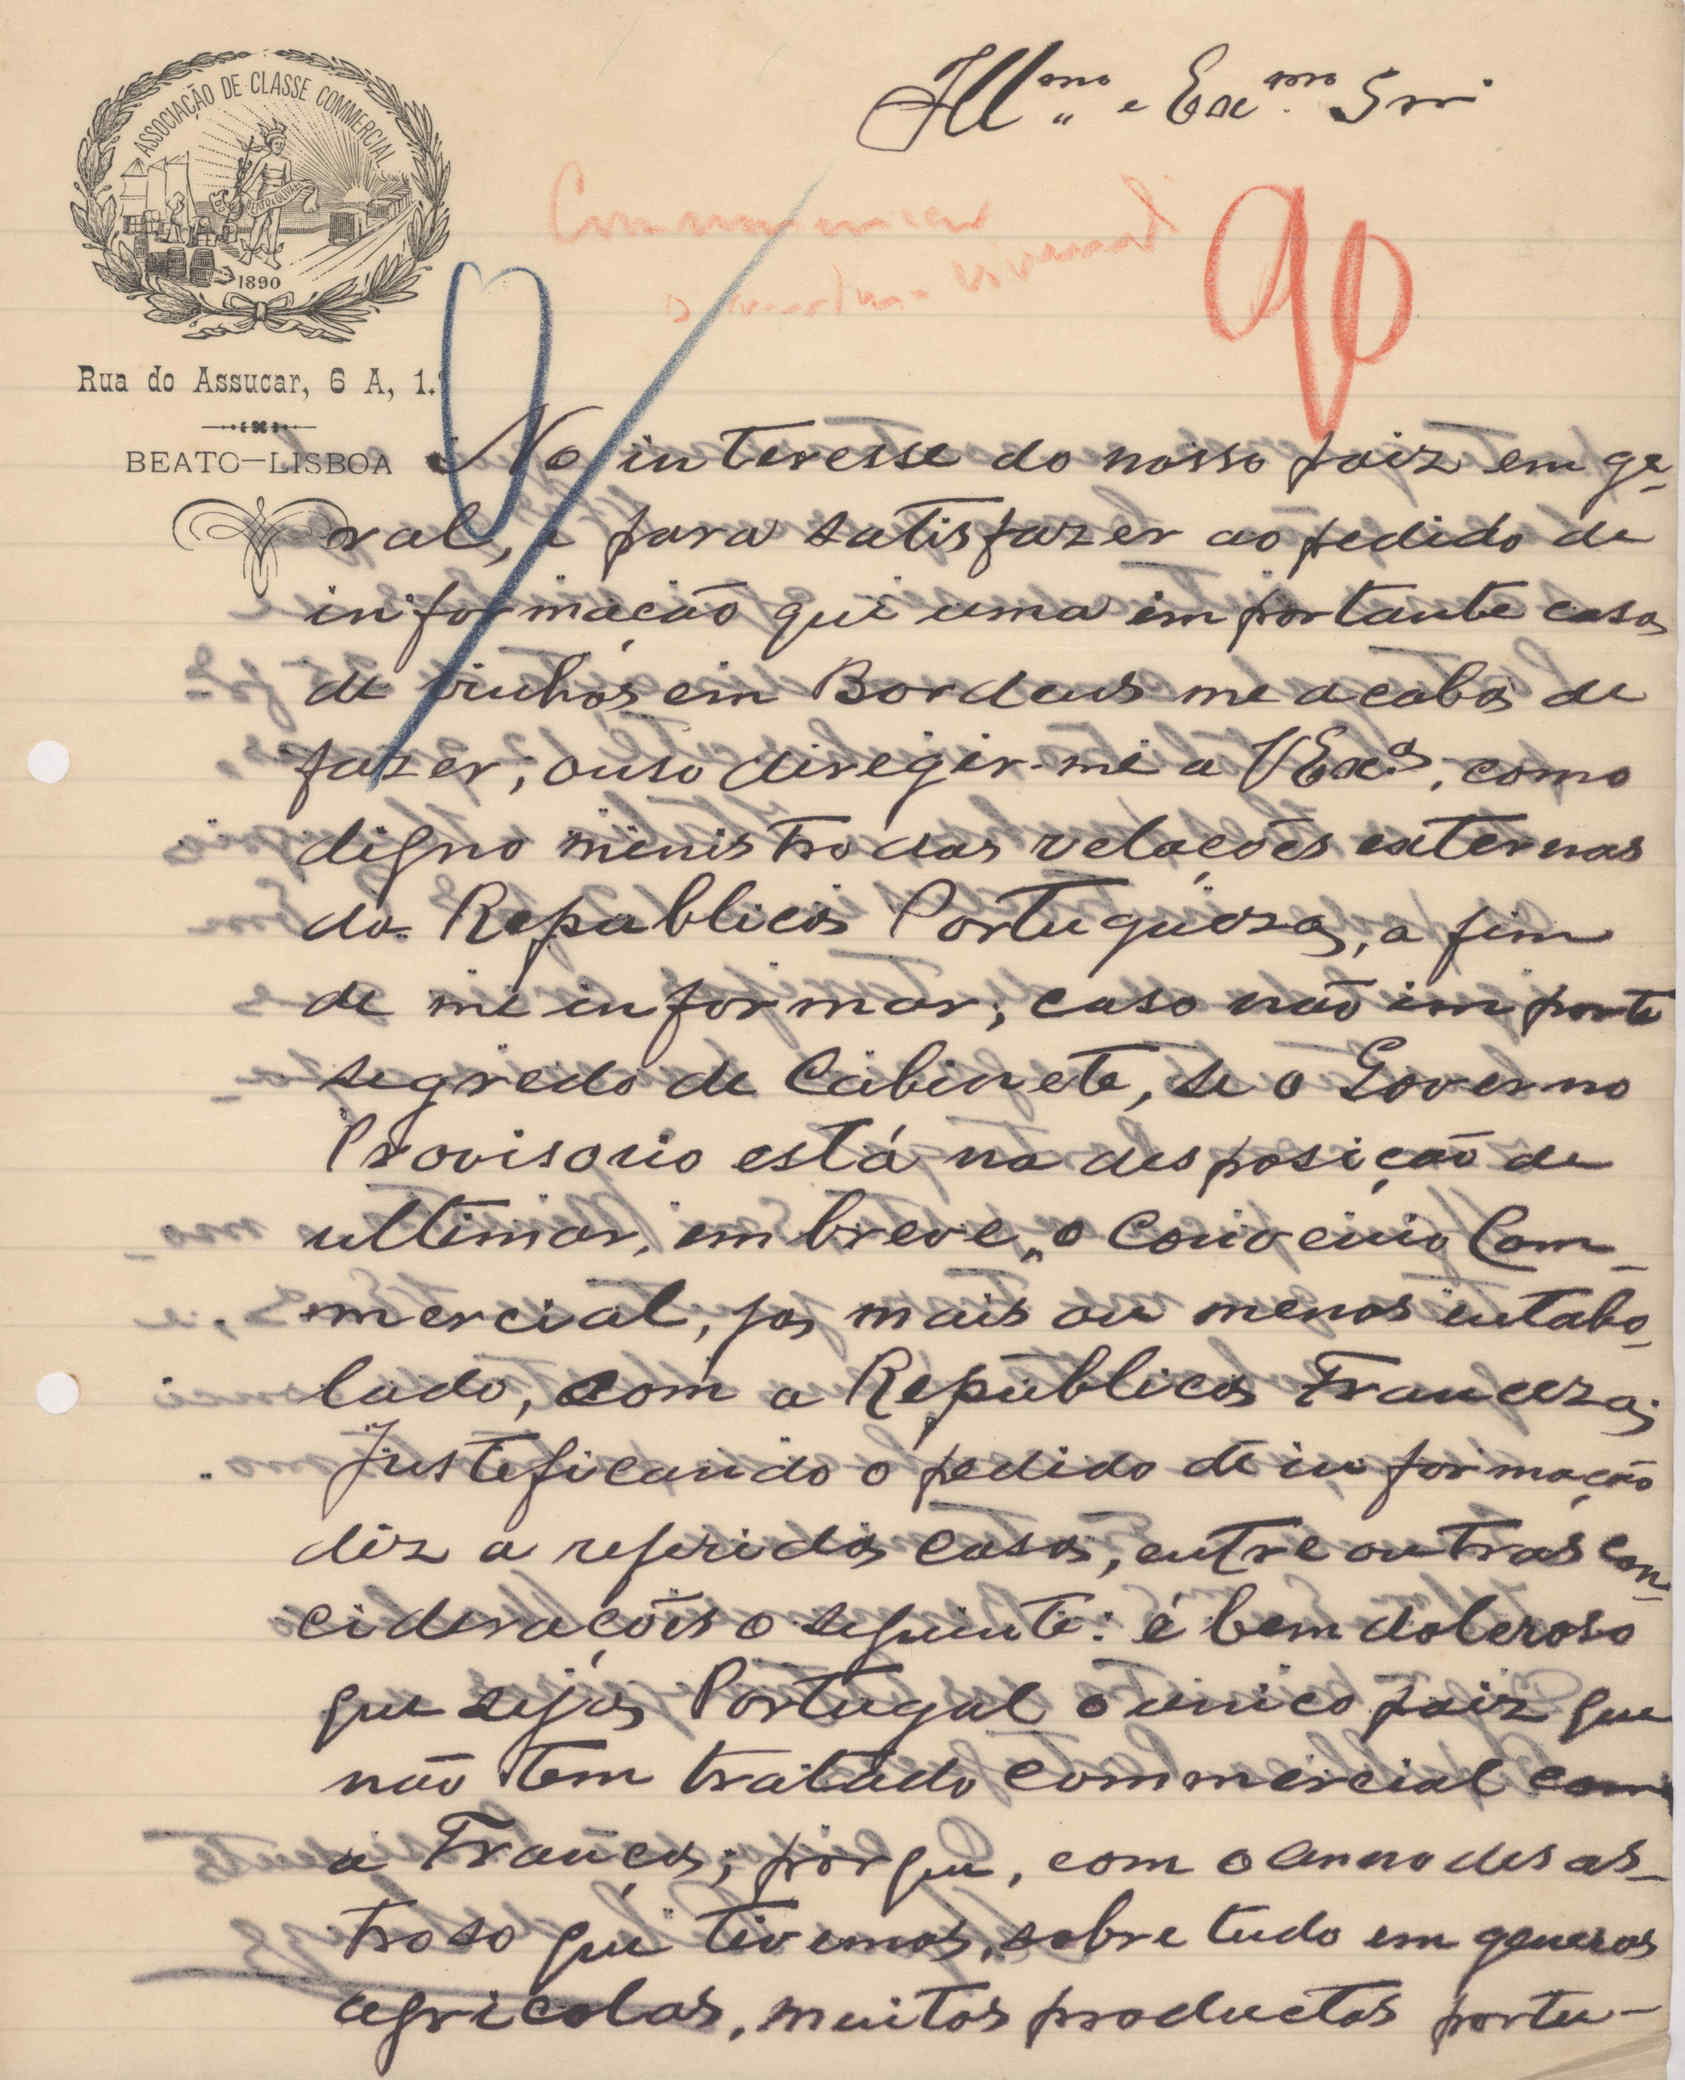 Ill.mo e Ex.mo Snr.
ASSOCIAÇÃO DE CLASSE COMMERCIAL
1890
Communicar
90
Rua do Assucar, 6 A, 1.º
BEATO—LISBOA
No interesse do nosso paiz em ge-
ral, e para satisfazer ao pedido de
informação que uma importante casa
de vinhos em Bordeus me acaba de
fazer; ouso diregir-me a V Ex.ª, como
digno ministro das relações externas
da Republica Portugueza, a fim
de me informar, caso não importe
segredo de Cabinete, se o Governo
Provisorio está na desposição de
ultimar, em breve, o Convenio Com-
mercial, ja mais ou menos entabo-
lado, com a Republica Franceza;
Justeficando o pedido de informação
diz a referida casa, entre outras con-
ciderações o seguinte: é bem doleroso
que seja Portugal o unico paiz que
não tem tratado commercial com
a França; porque, com o anno desas-
troso que tivemos, sobre tudo em generos
agricolas, muitos productos portu-